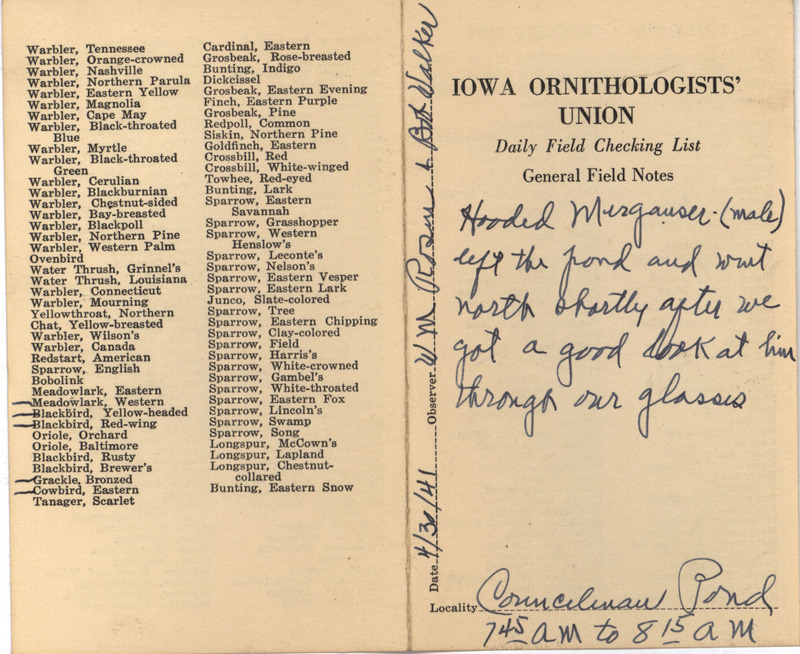 Warbler, Tennessee
Warbler, Orange-crowned
Warbler, Nashville
Warbler, Northern Parula
Warbler, Eastern Yellow
Warbler, Magnolia
Warbler, Cape May
Warbler, Black-throated
Blue
Warbler, Myrtle
Warbler, Black-throated
Green
Warbler, Cerulian
Warbler, Blackburnian
Warbler, Chestnut-sided
Warbler, Bay-breasted
Warbler, Blackpoll
Warbler, Northern Pine
Warbler, Western Palm
Ovenbird
Water Thrush, Grinnel's
Water Thrush, Louisiana
Warbler, Connecticut
Warbler, Mourning
Yellowthroat, Northern
Chat, Yellow-breasted
Warbler, Wilson's
Warbler, Canada
Redstart, American
Sparrow, English
Bobolink
Meadowlark, Eastern
Meadowlark, Western
Blackbird, Yellow-headed
Blackbird, Red-wing
Oriole, Orchard
Oriole, Baltimore
Blackbird, Rusty
Blackbird, Brewer's
Grackle, Bronzed
Cowbird, Eastern
Tanager, Scarlet
Cardinal, Eastern
Grosbeak, Rose-breasted
Bunting, Indigo
Dickcissel
Grosbeak, Eastern Evening
Finch, Eastern Purple
Grosbeak, Pine
Redpoll, Common
Siskin, Northern Pine
Goldfinch, Eastern
Crossbill, Red
Crossbill, White-winged
Towhee, Red-eyed
Bunting, Lark
Sparrow, Eastern
Savannah
Sparrow, Grasshopper
Sparrow, Western
Henslow's
Sparrow, Leconte's
Sparrow, Nelson's
Sparrow, Eastern Vesper
Sparrow, Eastern Lark
Junco, Slate-colored
Sparrow, Tree
Sparrow, Eastern Chipping
Sparrow, Clay-colored
Sparrow, Field
Sparrow, Harris's
Sparrow, White-crowned
Sparrow, Gambel's
Sparrow, White-throated
Sparrow, Eastern Fox
Sparrow, Lincoln's
Sparrow, Swamp
Sparrow, Song
Longspur, McCown's
Longspur, Lapland
Longspur, Chestnut-
collared
Bunting, Eastern Snow
Date 4/30/41 Observer W M Rosene + Bob Walker
IOWA ORNITHOLOGISTS'
UNION
Daily Field Checking List
General Field Notes
Hooded Merganser-(male)
left the pond and went
north shortly after we
got a good look at him
through our glasses
Locality Councelman Pond
7 45 AM to 8 15 AM